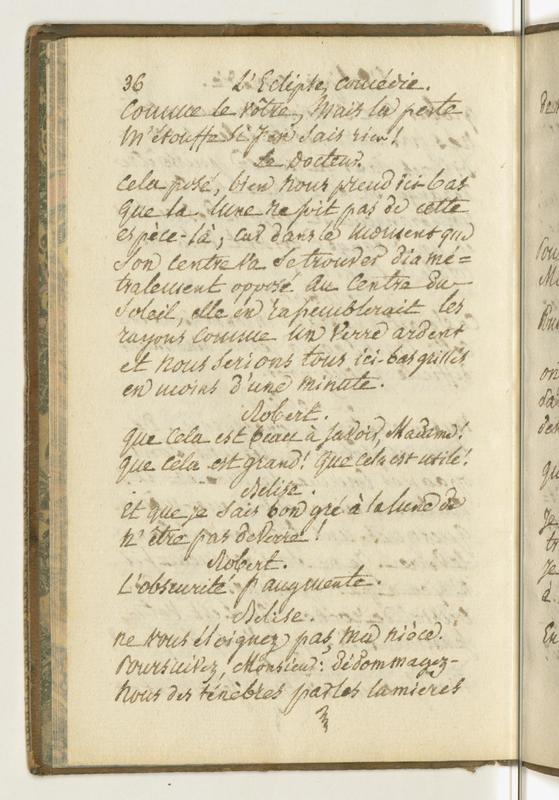 36 L'Eclipse, comédie.
comme le vôtre, mais la peste
m'étouffe si j'en sais rien!
Le Docteur.
Cela posé, bien nous prend ici-bas
que la lune ne soit pas de cette
espèce-là; car dans le moment que
son centre va se trouver diamé=
tralement opposé au centre du
soleil, elle en rassemblerait les
rayons comme un verre ardent
et nous serions tous ici-bas grillés
en moins d'une minute.
Robert.
que cela est beau à savoir, Madame!
que cela est grand! que cela est utile!
Belise.
Et que je sais bon gré à la lune de
n'être pas de verre!
Robert.
L'obscurité s'augmente.
Belise.
ne vous éloignez pas, ma nièce.
Poursuivez, Monsieur: dédommagez-
nous des ténèbres par les lumières